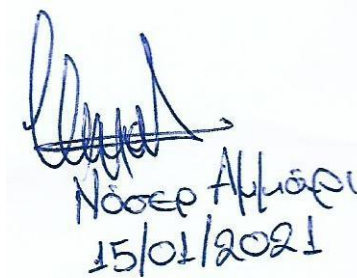 Νάσερ Αμμάρι
15/01/2021